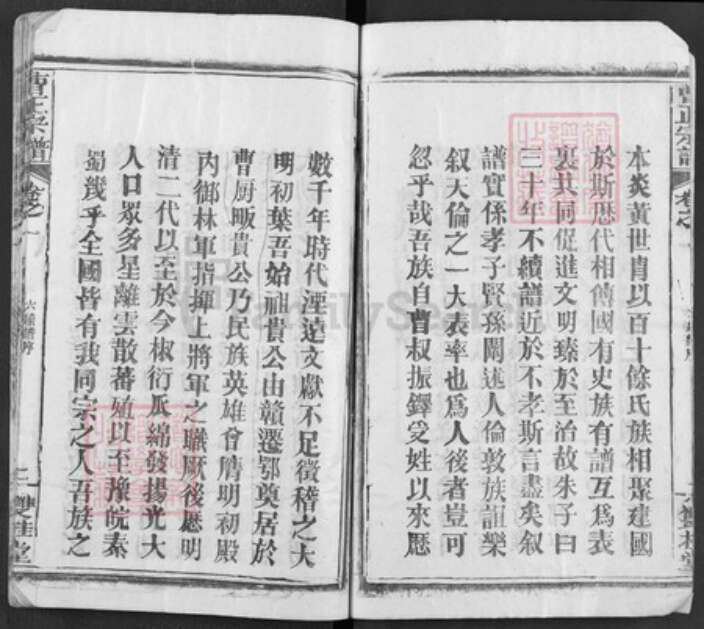 本炎黃世冑以百十餘氏族相聚建國
於斯歷代相傳國有史族有譜互爲表
裏共同促進文明臻於至治故朱子曰
三十年不續譜近於不孝斯言盡矣叙
譜實係孝子賢孫闡述人倫敦族誼樂
叙天倫之一大表率也爲人後者豈可
忽乎哉吾族自曹叔振鐸受姓以來歷
數千年時代湮遠文獻不足徵稽之大
明初葉吾始祖貴公由贛遷鄂奠居於
曹厨畈貴公乃民族英雄曾膺明初殿
內御林軍指揮上將軍之職厥後歷明
清二代以至於今椒衍瓜綿發揚光大
人口眾多星離雲散蕃殖以至豫皖素
蜀幾乎全國皆有我同宗之人吾族之
曹氏宗譜
卷之一
六續譜序
二
雙桂堂
FamilySearch